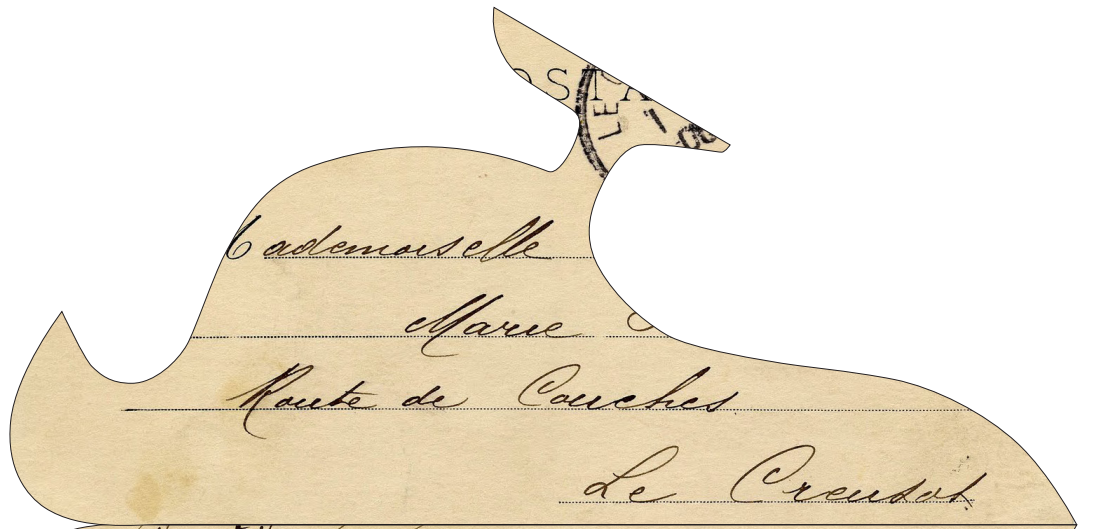 OSTA
LE
Mademoiselle
Marie
Route de Couches
Le Creusot